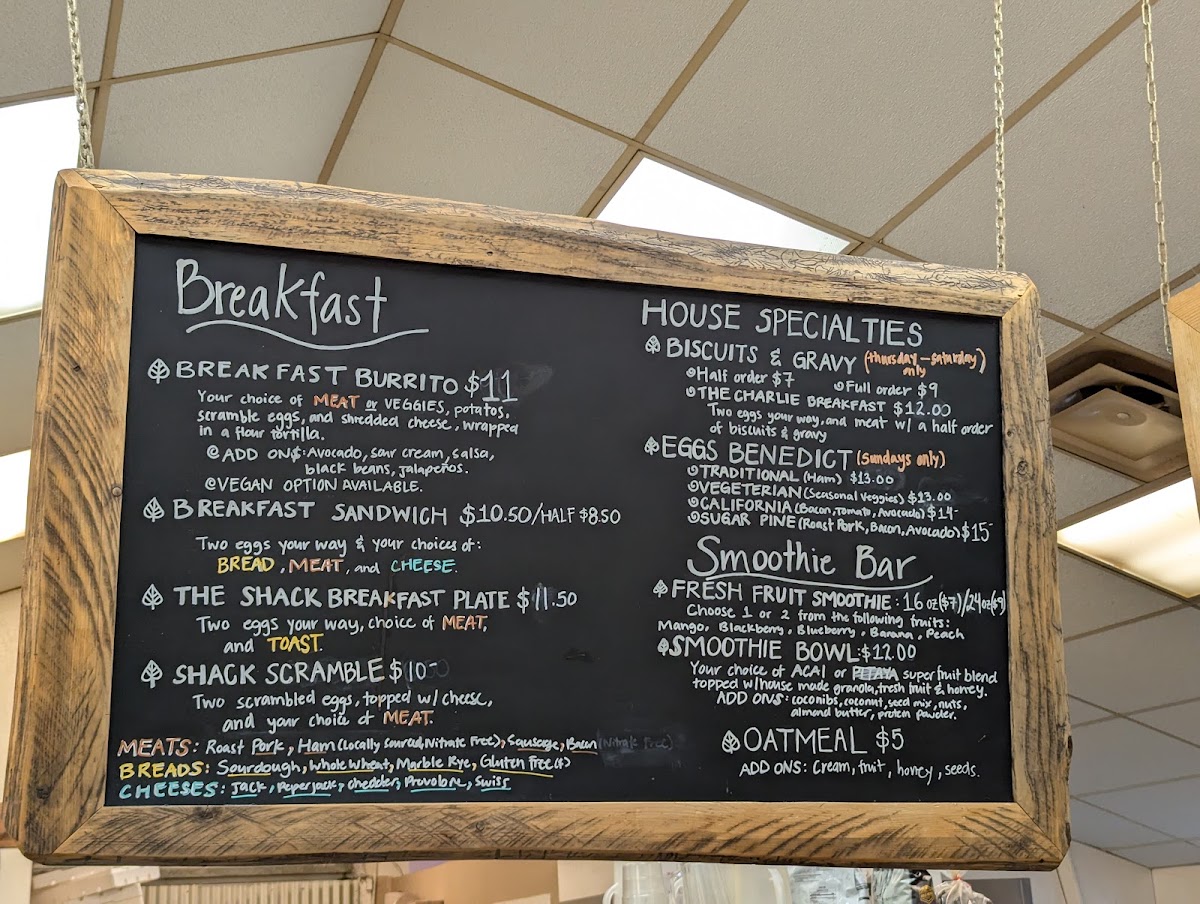 Breakfast
BREAKFAST BURRITO $11
Your choice of MEAT or VEGGIES, potatos,
scramble eggs, and shredded cheese, wrapped
in a flour tortilla.
@ADD ON$: Avocado, sour cream, salsa,
black beans, jalapeños.
@VEGAN OPTION AVAILABLE.
BREAKFAST SANDWICH $10.50/HALF $8.50
Two eggs your way & your choices of:
BREAD, MEAT, and CHEESE.
THE SHACK BREAKFAST PLATE $11.50
Two eggs your way, choice of MEAT,
and TOAST.
SHACK SCRAMBLE $10-
Two scrambled eggs, topped w/ cheese,
and your choice of MEAT.
MEATS: Roast Pork, Ham (Locally sourced, Nitrate Free), Sausage, Bacon (Nitrate Free)
BREADS: Sourdough, Whole Wheat, Marble Rye, Gluten Free
CHEESES: Jack, Peperjack, Chedder, Provolone, Swiss
HOUSE SPECIALTIES
BISCUITS & GRAVY (thursday-saturday only)
Half order $7 Full order $9
THE CHARLIE BREAKFAST $12.00
Two eggs your way, and meat w/ a half order
of biscuits & gravy
EGGS BENEDICT (Sundays only)
TRADITIONAL (Ham) $13.00
VEGETERIAN (Seasonal Veggies) $13.00
CALIFORNIA (Bacon, Tomato, Avocado) $14-
SUGAR PINE (Roast Pork, Bacon, Avocado) $15-
Smoothie Bar
FRESH FRUIT SMOOTHIE: 16 oz ($7)/24oz ($9)
Choose 1 or 2 from the following fruits:
Mango, Blackberry, Blueberry, Banana, Peach
SMOOTHIE BOWL: $12.00
Your choice of ACAI or PITAYA superfruit blend
topped w/ house made granola, fresh fruit & honey.
ADD ONS: coconibs, coconut, seed mix, nuts,
almond butter, protein powder.
OATMEAL $5
ADD ONS: Cream, fruit, honey, seeds.